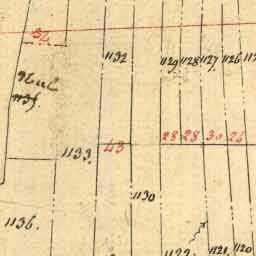 52
1132 1129 1128 1127. 1126
1135
1133. 43 28 28 30 26
1130
1136.
1121. 1120